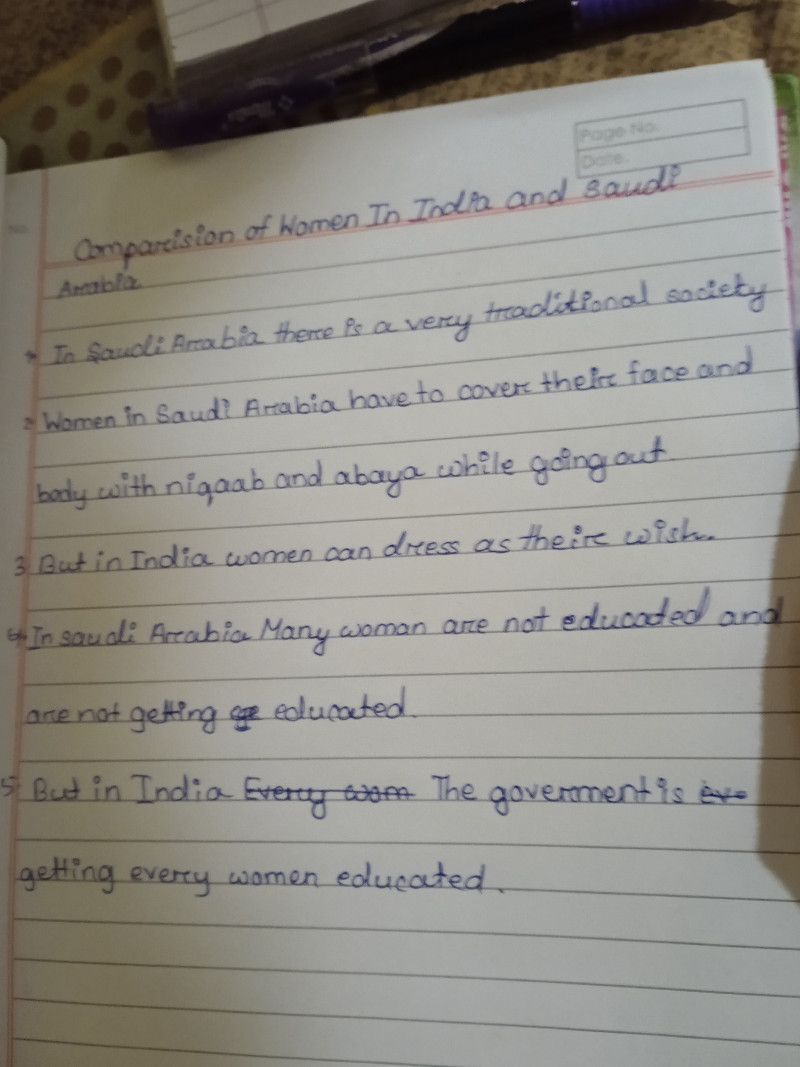 Page No.
Date.
Comparision of Women In India and Saudi
Arabia
1 In Saudi Arabia there is a very traditional society
2 Women in Saudi Arabia have to cover their face and
body with niqaab and abaya while going out
3 But in India women can dress as their wish.
4 In saudi Arabia Many woman are not educated and
are not getting ge educated.
5 But in India Every wom The goverment is eve
getting every women educated.